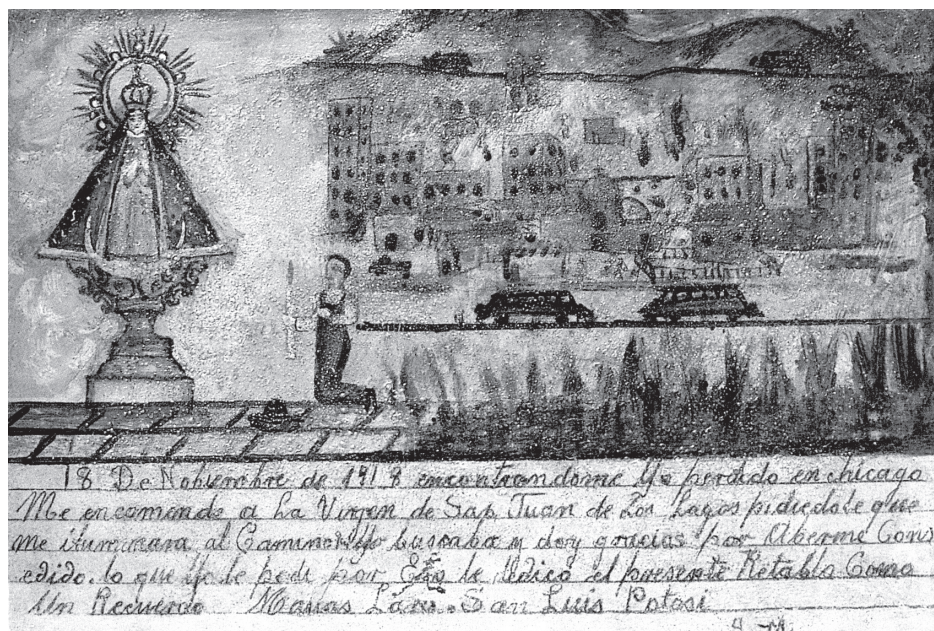 18 De Nobiembre de 1918 encontrandome Yo perdido en chicago
Me encomende a La Virgen de San Juan de Los Lagos pidiedole que
me iluminara al Camino Yo buscaba y doy gracias por Aberme Cons
edido. lo que Yo le pedi por Eso le dedico el presente Retablo Como
Un Recuerdo Matias Lara. San Luis Potosi